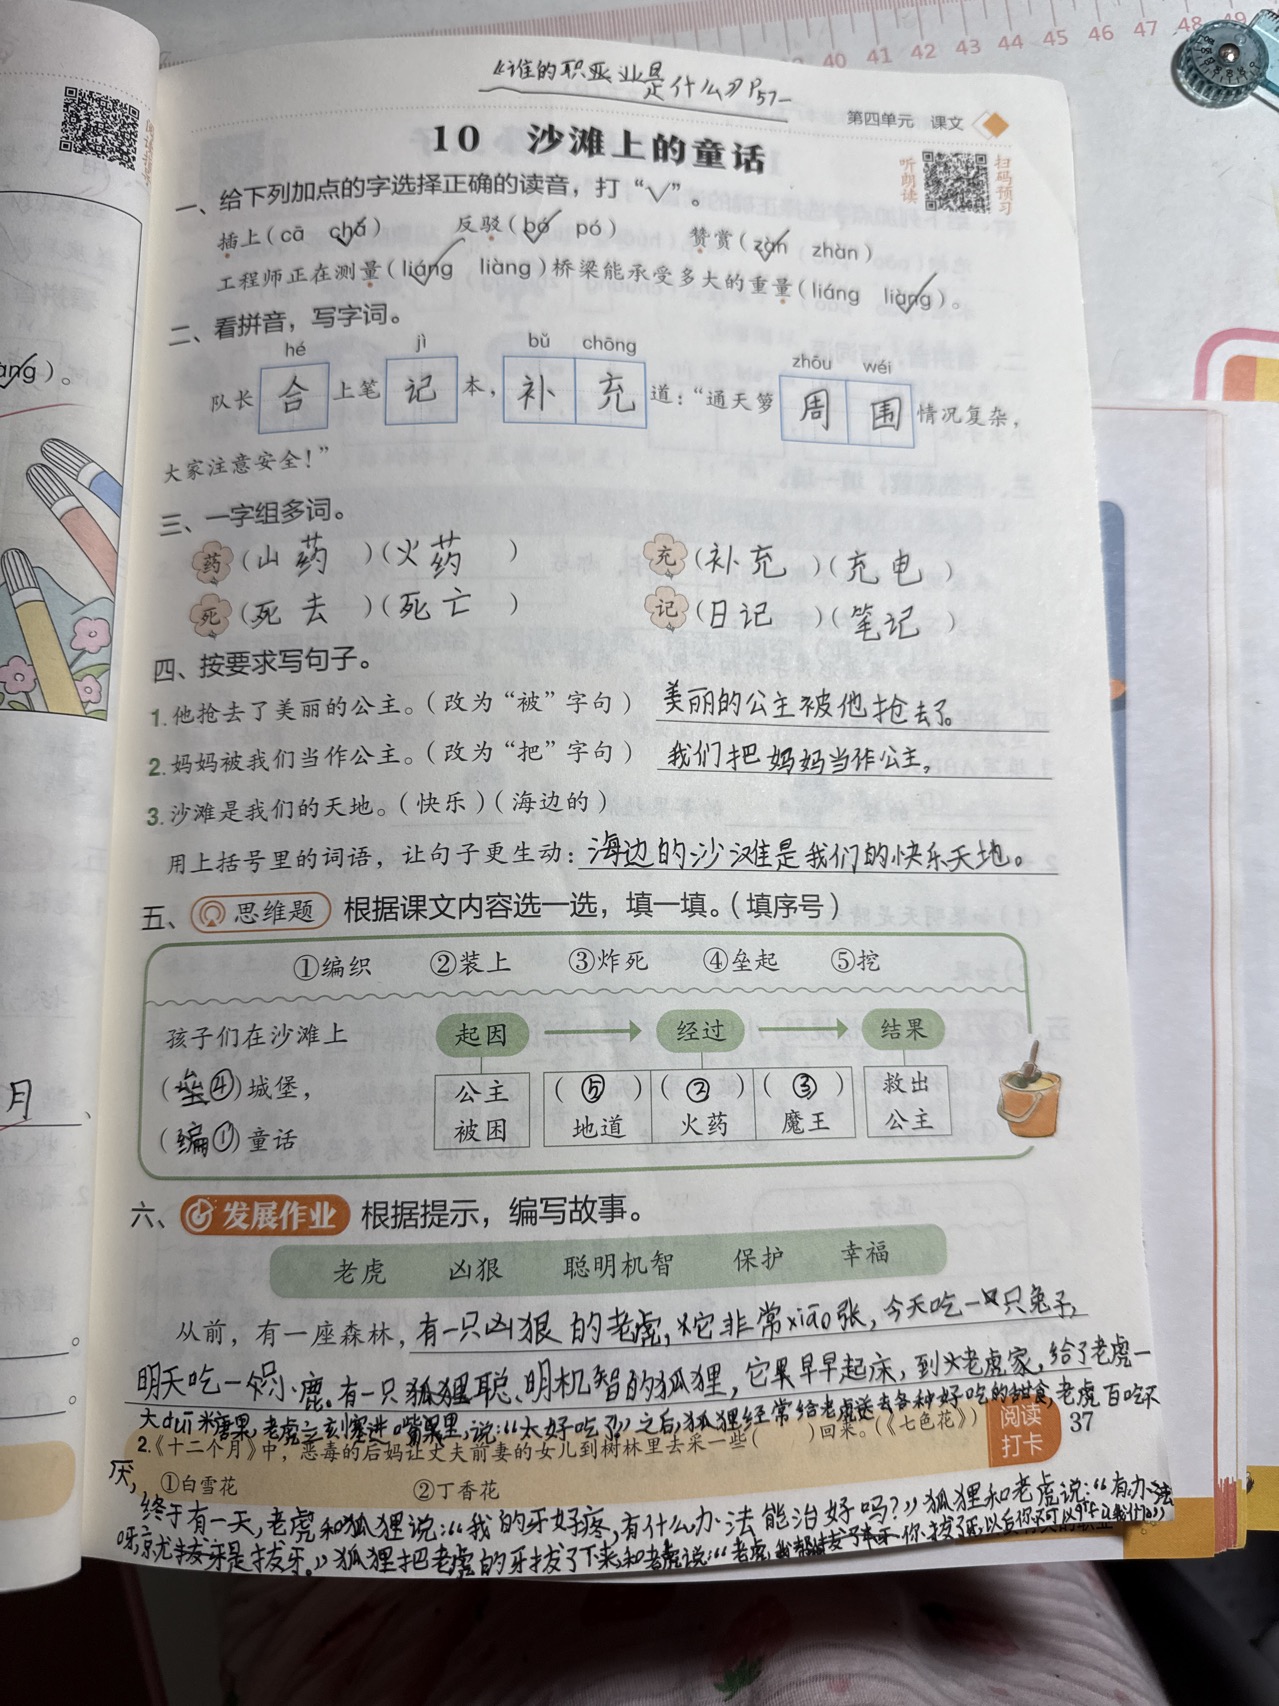 《谁的职业是什么》P57
第四单元 课文
10 沙滩上的童话
听朗读
扫码预习
一、给下列加点的字选择正确的读音，打“√”。
插上(cā chā) 反驳(bó pó) 赞赏(zàn zhàn)
工程师正在测量(liáng liàng)桥梁能承受多大的重量(liáng liàng)。
ang)。
二、看拼音，写字词。
hé jì bǔ chōng zhōu wéi
队长合上笔记本，补充道：“通天萝周围情况复杂，
大家注意安全！”
三、一字组多词。
药(山药)(火药) 充(补充)(充电)
死(死去)(死亡) 记(日记)(笔记)
四、按要求写句子。
1.他抢去了美丽的公主。(改为“被”字句) 美丽的公主被他抢去了。
2.妈妈被我们当作公主。(改为“把”字句) 我们把妈妈当作公主，
3.沙滩是我们的天地。(快乐)(海边的)
用上括号里的词语，让句子更生动：海边的沙滩是我们的快乐天地。
五、思维题 根据课文内容选一选，填一填。(填序号)
①编织 ②装上 ③炸死 ④垒起 ⑤挖
孩子们在沙滩上 起因 经过 结果
(垒④)城堡， 公主 (⑤) (②) (③) 救出
(编①)童话 被困 地道 火药 魔王 公主
月、
六、发展作业 根据提示，编写故事。
老虎 凶狠 聪明机智 保护 幸福
从前，有一座森林，有一只凶狠的老虎，它非常xiāo张，今天吃一只兔子，
明天吃一只小鹿。有一只狐狸聪明机智的狐狸，它早早起床，到老虎家，给了老虎一
大duī糖果，老虎立刻塞进嘴里，说：“太好吃了”之后，狐狸经常给老虎送去各种好吃的甜食，老虎百吃不
2.《十二个月》中，恶毒的后妈让丈夫前妻的女儿到树林里去采一些( )回来。(《七色花》)
阅读打卡
37
厌，
①白雪花 ②丁香花
终于有一天，老虎和狐狸说：“我的牙好疼，有什么办法能治好吗？”狐狸和老虎说：“有办法
呀，京尤拔牙是拔牙。”狐狸把老虎的牙拔了下来，和老虎说：“老虎，